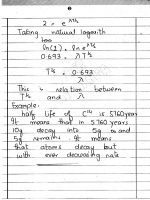 2 = e^λT½
Taking natural logarith
ln(2) = ln e^λT½
0.693 = λ T½
T½ = 0.693
λ
This is relation between
T½ and λ
Example:
half life of C¹⁴ is 5760 years
It means that in 5760 years
10g decay into 5g and
5g remains. It means
that atoms decay but
with ever decreasing rate.